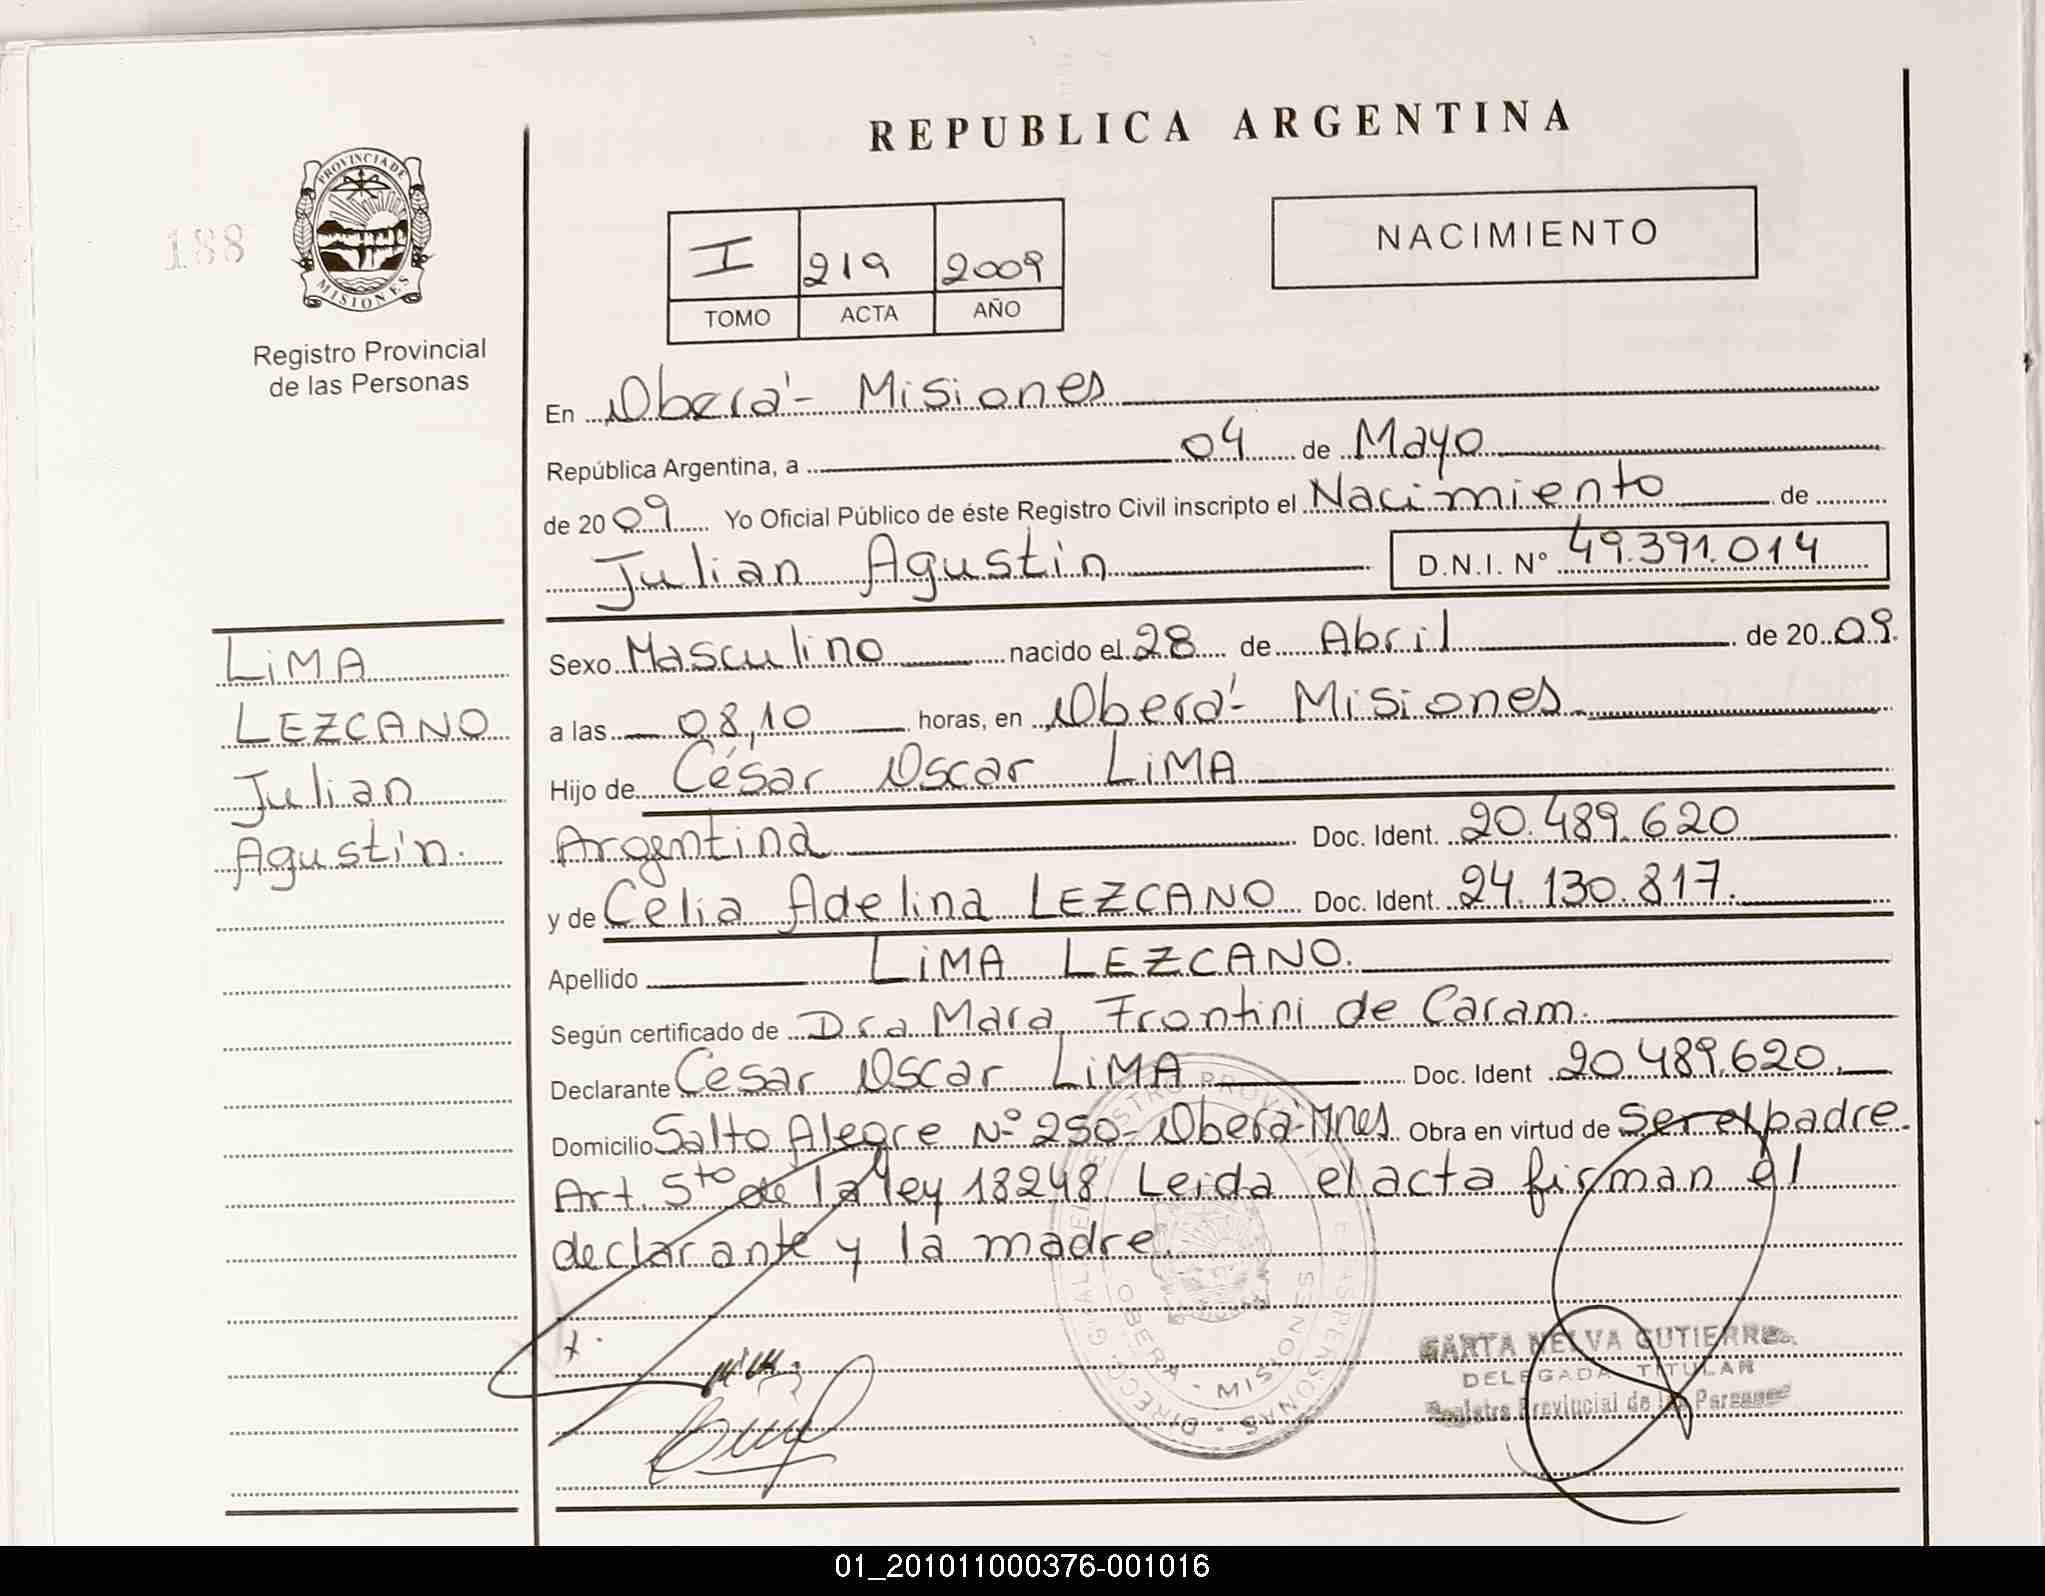 REPUBLICA ARGENTINA
188
PROVINCIA DE
MISIONES
Registro Provincial
de las Personas
I 219 2009
TOMO ACTA AÑO
NACIMIENTO
En Oberá - Misiones
República Argentina, a 04 de Mayo
de 2009 Yo Oficial Público de éste Registro Civil inscripto el Nacimiento de
Julian Agustin D.N.I. Nº 49.391.014
LiMA
LEZCANO
Julian
Agustín.
Sexo Masculino nacido el 28 de Abril de 2009.
a las 08,10 horas, en Oberá - Misiones
Hijo de César Oscar LiMA
Argentina Doc. Ident. 20.489.620
y de Celia Adelina LEZCANO Doc. Ident. 24.130.817.
Apellido LiMA LEZCANO.
Según certificado de Dra Mara Frontini de Caram.
Declarante Cesar Oscar LiMA Doc. Ident 20.489.620.
Domicilio Salto Alegre Nº 250 - Oberá - Mnes Obra en virtud de Ser el padre.
Art. 5to de la ley 18248. Leida el acta firman el
declarante y la madre.
OBERA - MISIONES
NELVA GUTIERRE
DELEGADA TITULAR
Registro Provincial de las Personas
01_201011000376-001016